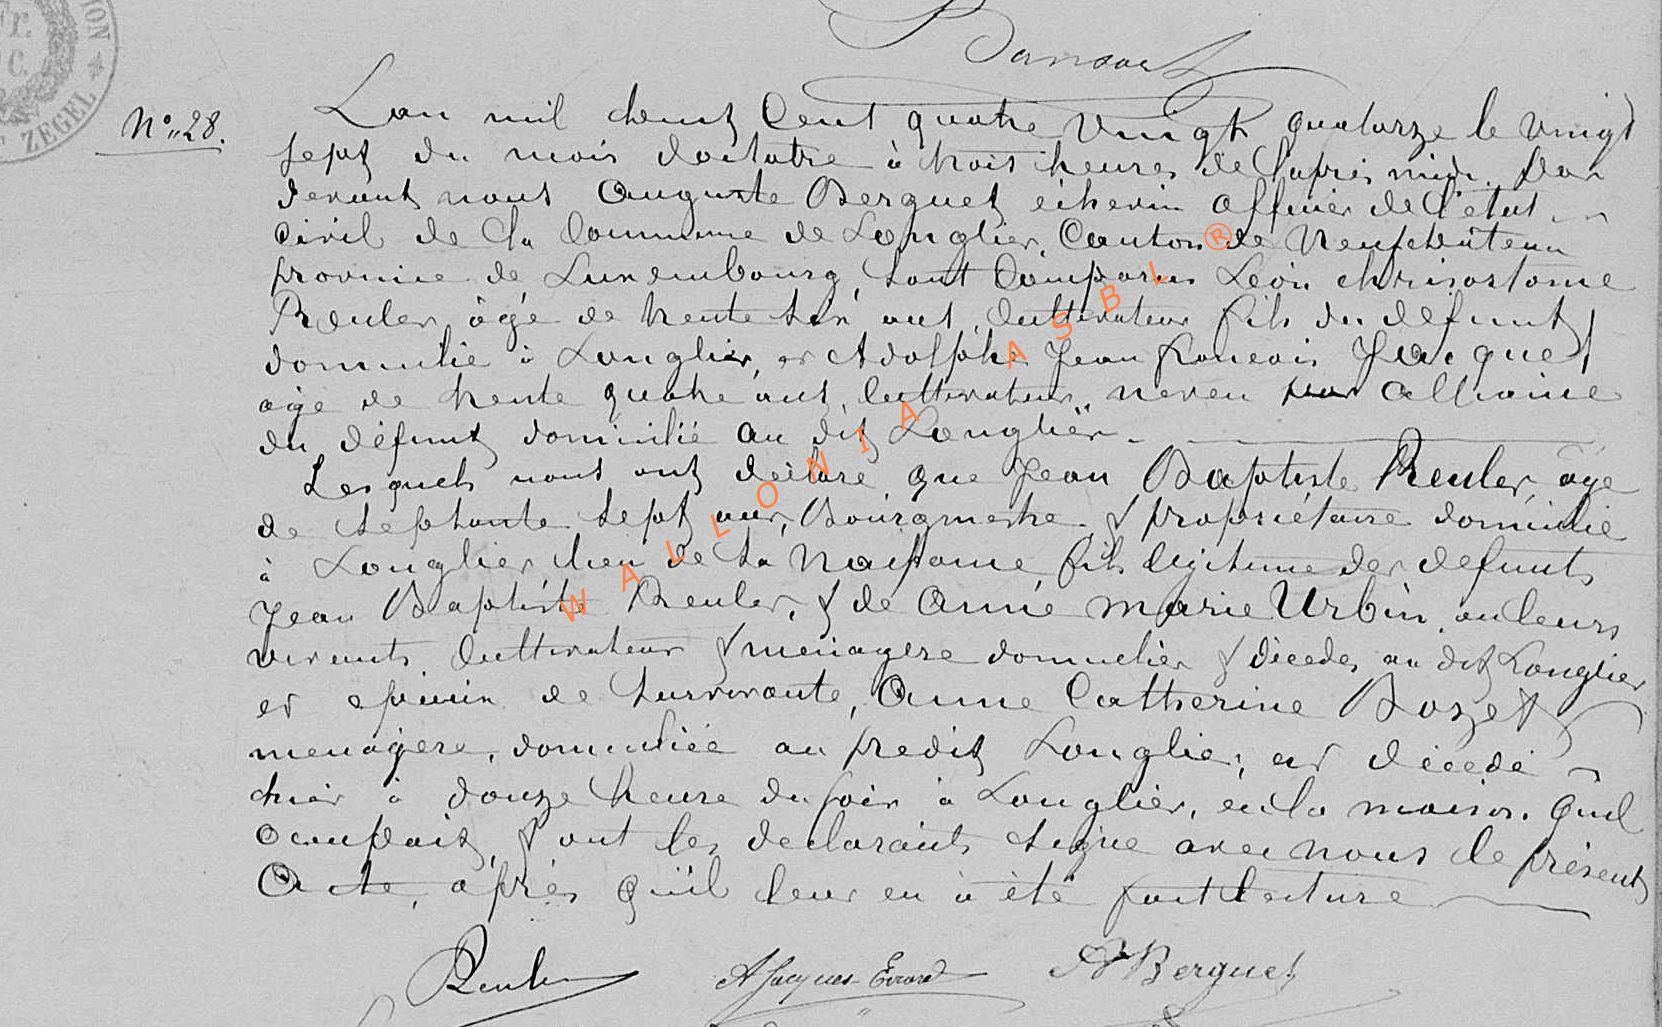 Bansart
N° 28.
Lan mil cheuit Cent quatre vingt quatorze le vingt
sept du mois doctobre à trois heures de laprès midi. Par
devant nous Auguste Berquet échevin officier de l'état
Civil de la Commune de Longlier, Canton de Neufchâteau
province de Luxembourg, sont Comparus Léon chrisostome
Reuler, âgé de trente six ans, Cultivateur fils du défunt
domicilié à Longlier, et Adolphe Jean francois Jacques
âgé de trente quatre ans, Cultivateur, neveu par alliance
du défunt domicilié au dit Longlier.
Lesquels nous ont déclaré que Jean Baptiste Reuler, âgé
de septante sept ans, Bourgmestre & propriétaire domicilié
à Longlier lieu de sa naissance, fils légitime des défunts
Jean Baptiste Reuler, & de Anne marie Urbin, en leurs
vivants Cultivateur & ménagère domiciliés & décédés au dit Longlier
et époux de survivante, Anne Catherine Bozet
menagère, domiciliée au predit Longlier, est décédé
hier à douze heure du soir à Longlier, en la maison quil
occupait, & ont les declarants signé avec nous le présent
Acte, après qu'il leur en à été fait lecture
Reuler A Jacques-Evrard A Berquet
WALLONIA ASBL ®
ZEGEL